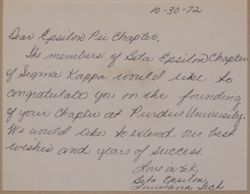 10-30-72
Dear Epsilon Psi Chapter,
The members of Beta Epsilon Chapter
of Sigma Kappa would like to
congratulate you on the founding
of your chapter at Purdue University.
We would like to extend our best
wishes and years of success.
Love in ΣK,
Beta Epsilon
Louisiana Tech